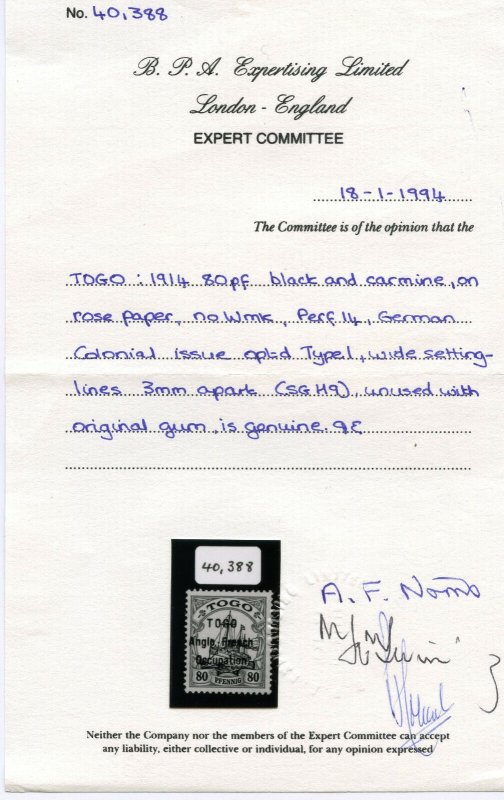 No. 40,388
B. P. A. Expertising Limited
London - England
EXPERT COMMITTEE
18-1-1994
The Committee is of the opinion that the
TOGO: 1914 80pf black and carmine, on
rose paper, no Wmk, Perf 14, German
Colonial issue optd Type 1, wide setting-
lines 3mm apart (SG H9), unused with
original gum, is genuine.
40,388
TOGO
TOGO
Anglo-French
Occupation
80 PFENNIG 80
A. F.
Neither the Company nor the members of the Expert Committee can accept
any liability, either collective or individual, for any opinion expressed